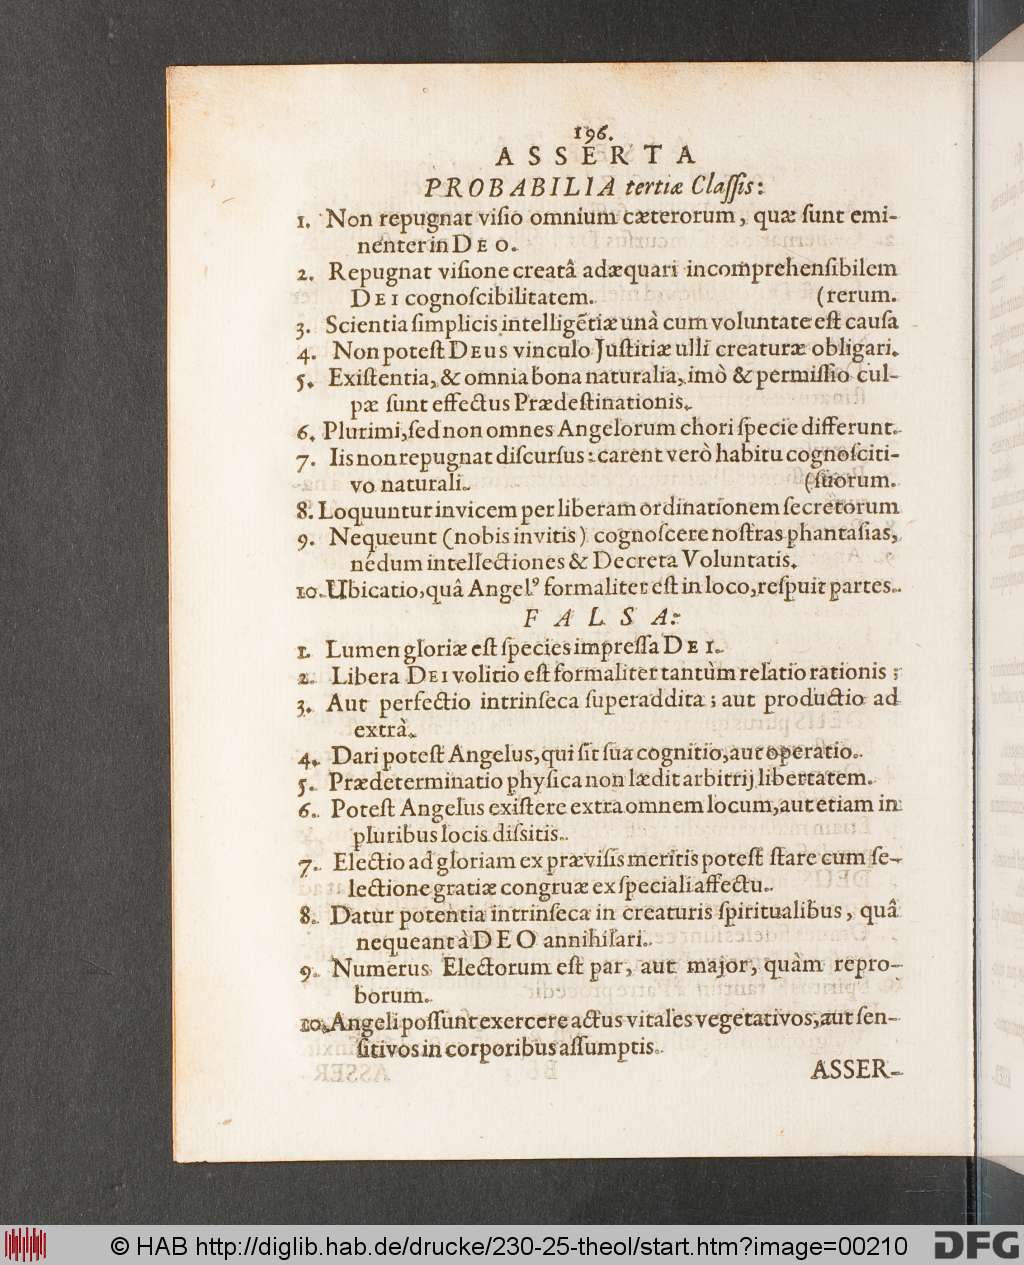 196.
ASSERTA
PROBABILIA tertiæ Claſſis:
1. Non repugnat viſio omnium cæterorum, quæ ſunt emi-
nenter in DEO.
2. Repugnat viſione creatâ adæquari incomprehenſibilem
DEI cognoſcibilitatem. (rerum.
3. Scientia ſimplicis intelligẽtiæ unà cum voluntate eſt cauſa
4. Non poteſt DEUS vinculo Juſtitiæ ulli creaturæ obligari.
5. Exiſtentia, & omnia bona naturalia, imò & permiſſio cul-
pæ ſunt effectus Prædeſtinationis.
6. Plurimi, ſed non omnes Angelorum chori ſpecie differunt.
7. Iis non repugnat diſcurſus: carent verò habitu cognoſciti-
vo naturali. (ſuorum.
8. Loquuntur invicem per liberam ordinationem ſecretorum
9. Nequeunt (nobis invitis) cognoſcere noſtras phantaſias,
nédum intellectiones & Decreta Voluntatis.
10. Ubicatio, quâ Angelꝰ formaliter eſt in loco, reſpuit partes.
FALSA:
1. Lumen gloriæ eſt ſpecies impreſſa DEI.
2. Libera DEI volitio eſt formaliter tantùm relatio rationis;
3. Aut perfectio intrinſeca ſuperaddita; aut productio ad
extrà.
4. Dari poteſt Angelus, qui ſit ſua cognitio, aut operatio.
5. Prædeterminatio phyſica non lædit arbitrij libertatem.
6. Poteſt Angelus exiſtere extra omnem locum, aut etiam in
pluribus locis diſsitis.
7. Electio ad gloriam ex præviſis meritis poteſt ſtare cum ſe-
lectione gratiæ congruæ ex ſpeciali affectu.
8. Datur potentia intrinſeca in creaturis ſpiritualibus, quâ
nequeant à DEO annihilari.
9. Numerus Electorum eſt par, aut major, quàm repro-
borum.
10. Angeli poſſunt exercere actus vitales vegetativos, aut ſen-
ſitivos in corporibus aſſumptis.
ASSER-
© HAB http://diglib.hab.de/drucke/230-25-theol/start.htm?image=00210
DFG